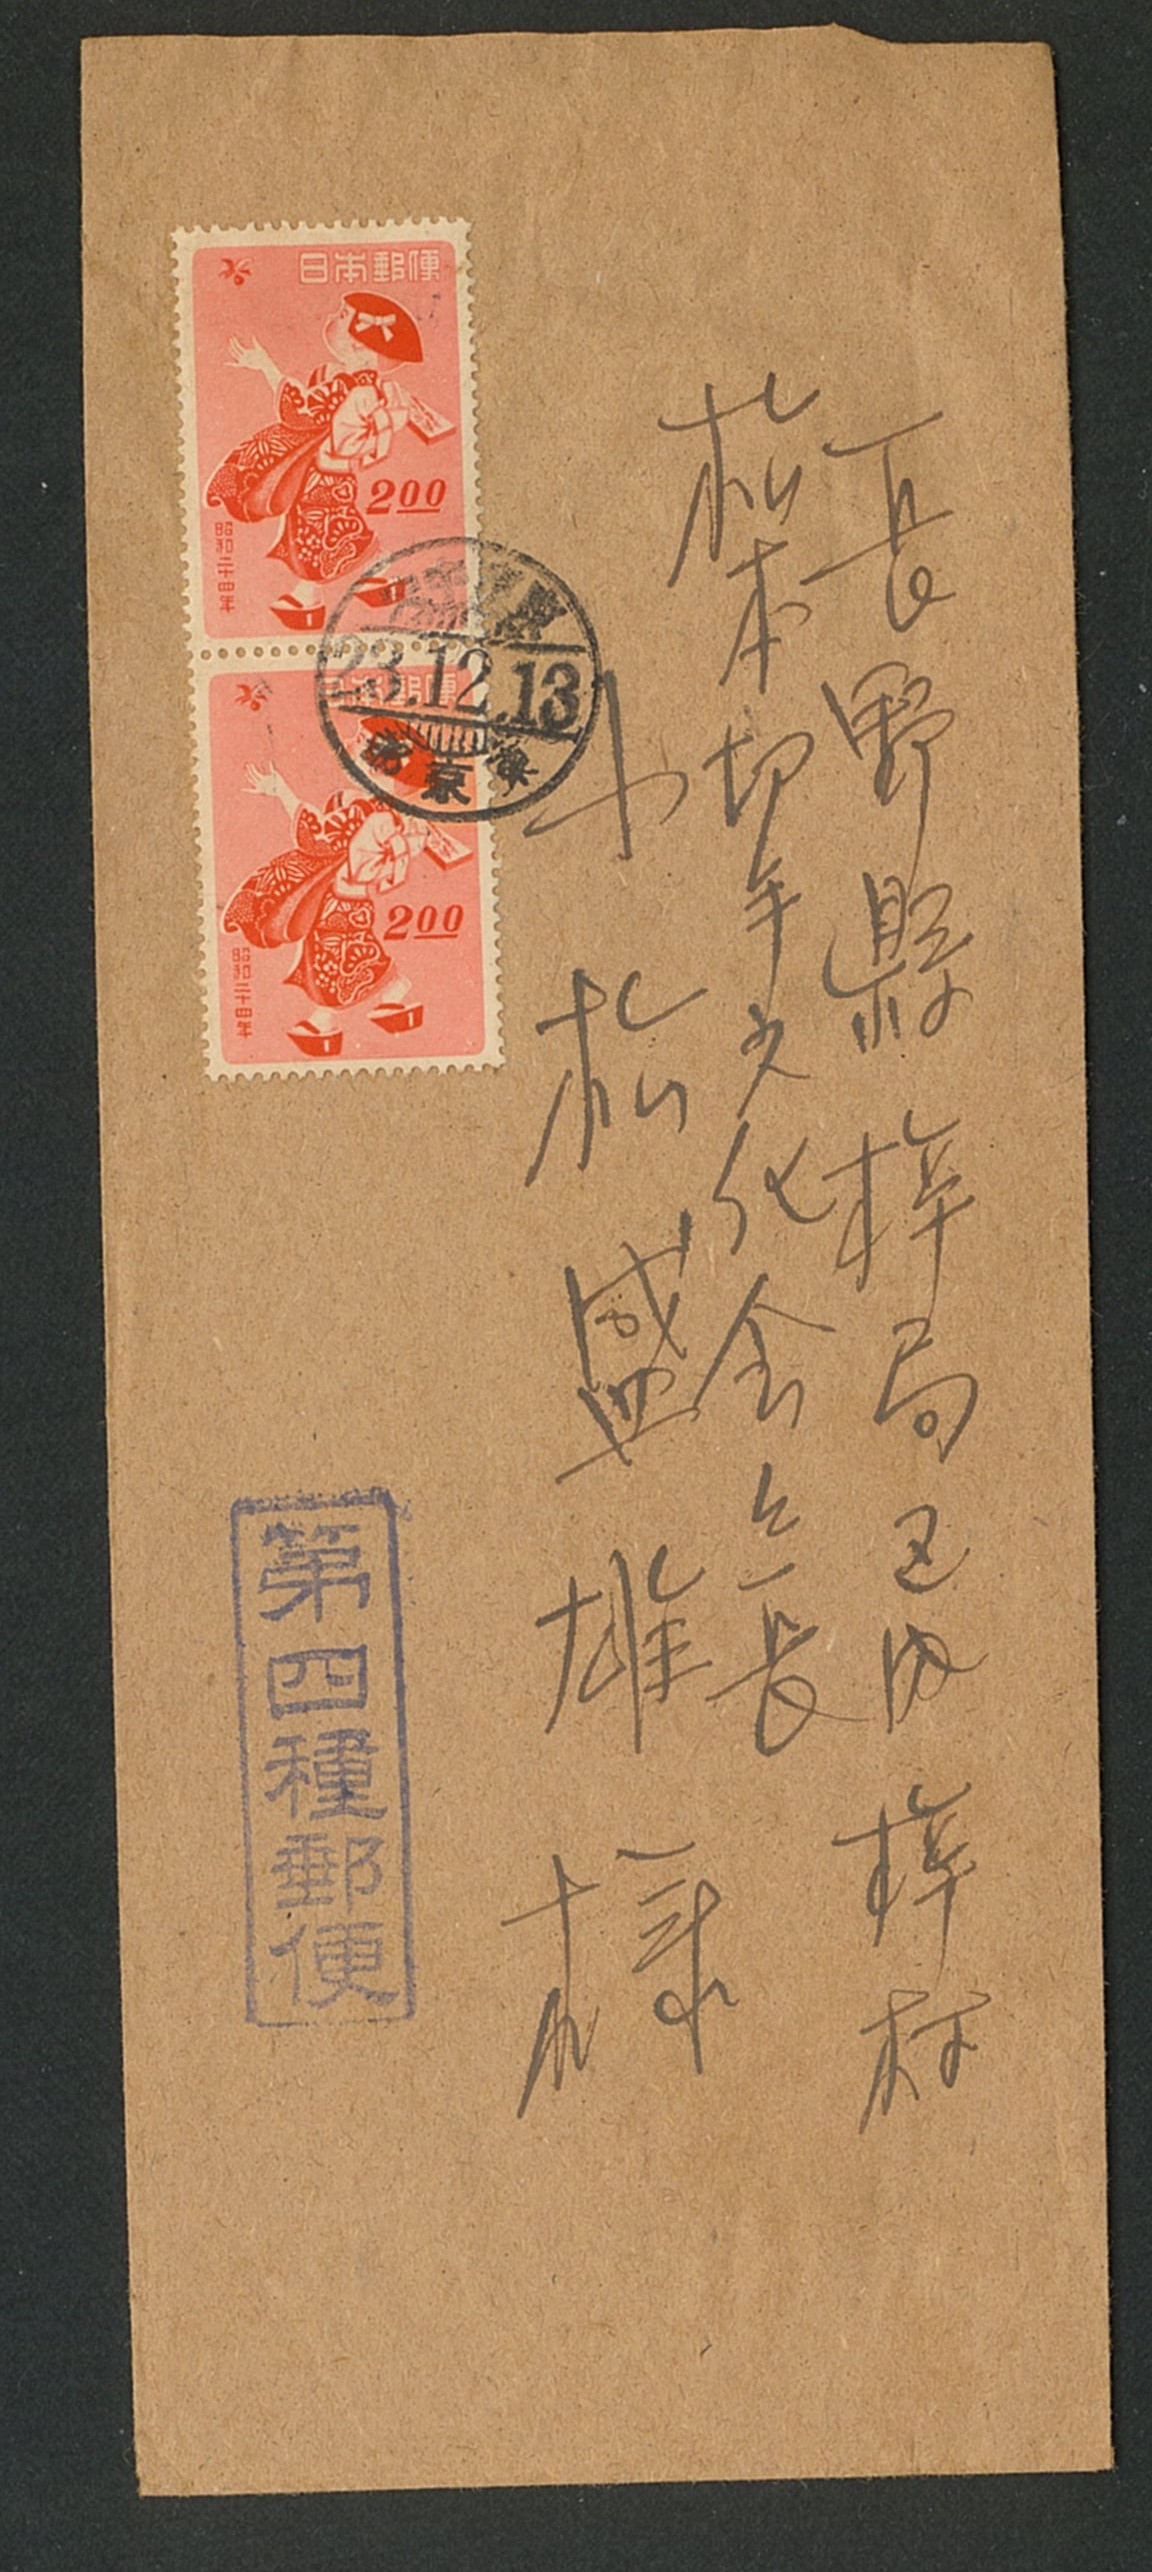 長野縣梓局区内梓村
松本切手文化会々長
小松盛雄様
日本郵便
200
昭和二十四年
23.12.13
東京
日本郵便
200
昭和二十四年
第四種郵便